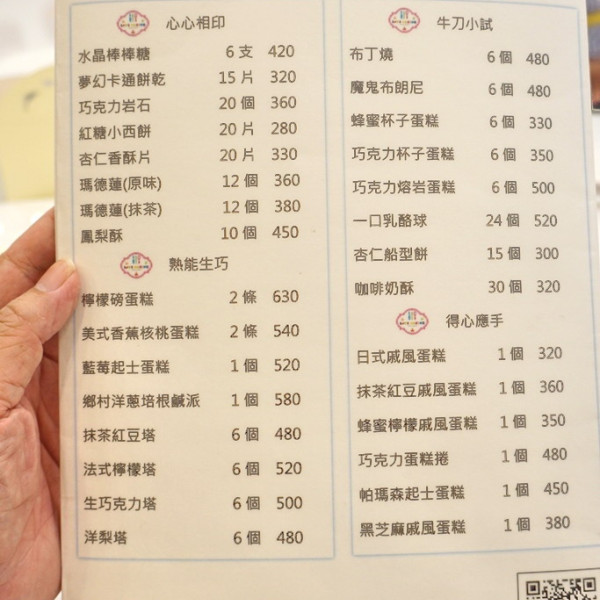 心心相印
水晶棒棒糖 6 支 420
夢幻卡通餅乾 15 片 320
巧克力岩石 20 個 360
紅糖小西餅 20 片 280
杏仁香酥片 20 片 330
瑪德蓮(原味) 12 個 360
瑪德蓮(抹茶) 12 個 380
鳳梨酥 10 個 450
熟能生巧
檸檬磅蛋糕 2 條 630
美式香蕉核桃蛋糕 2 條 540
藍莓起士蛋糕 1 個 520
鄉村洋蔥培根鹹派 1 個 580
抹茶紅豆塔 6 個 480
法式檸檬塔 6 個 520
生巧克力塔 6 個 500
洋梨塔 6 個 480
牛刀小試
布丁燒 6 個 480
魔鬼布朗尼 6 個 480
蜂蜜杯子蛋糕 6 個 330
巧克力杯子蛋糕 6 個 350
巧克力熔岩蛋糕 6 個 500
一口乳酪球 24 個 520
杏仁船型餅 15 個 300
咖啡奶酥 30 個 320
得心應手
日式戚風蛋糕 1 個 320
抹茶紅豆戚風蛋糕 1 個 360
蜂蜜檸檬戚風蛋糕 1 個 350
巧克力蛋糕捲 1 個 480
帕瑪森起士蛋糕 1 個 450
黑芝麻戚風蛋糕 1 個 380